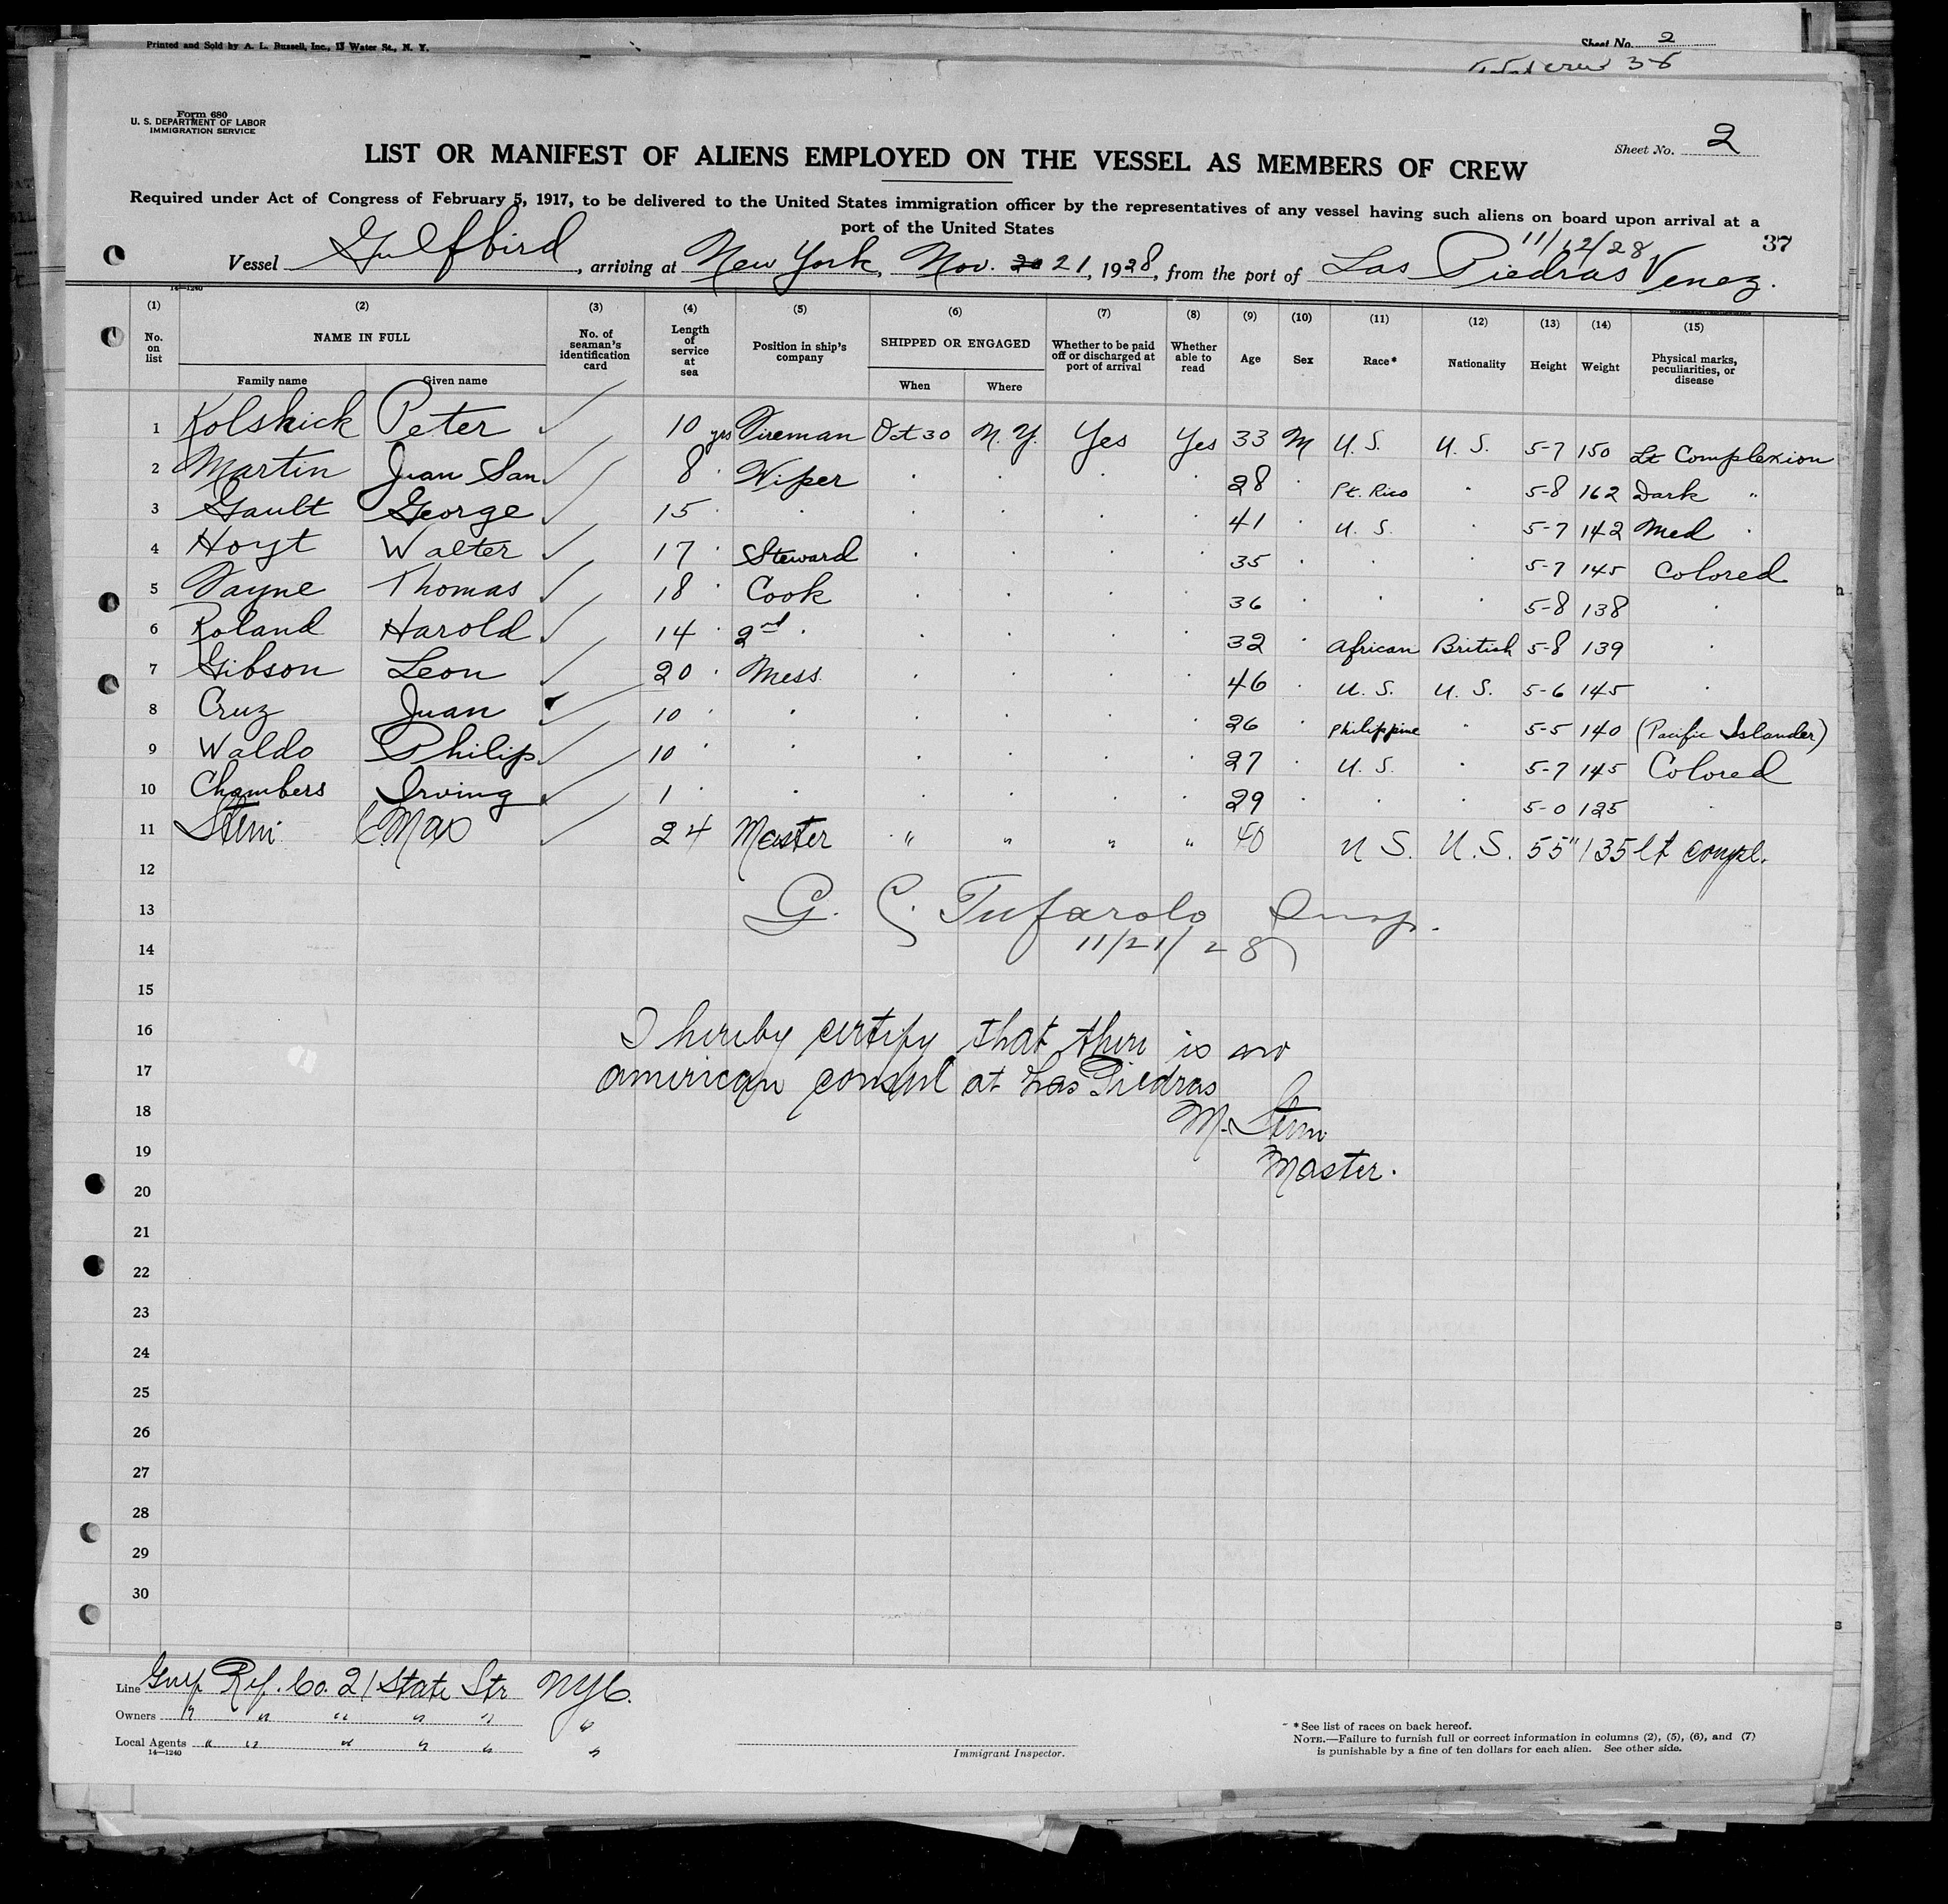 Printed and Sold by A. L. Russell, Inc., 13 Water St., N. Y.
Sheet No. 2
Total crew 35
Form 680
U. S. DEPARTMENT OF LABOR
IMMIGRATION SERVICE
Sheet No. 2
LIST OR MANIFEST OF ALIENS EMPLOYED ON THE VESSEL AS MEMBERS OF CREW
Required under Act of Congress of February 5, 1917, to be delivered to the United States immigration officer by the representatives of any vessel having such aliens on board upon arrival at a
port of the United States
11/12/28
37
Vessel Gulfbird, arriving at New York, Nov. 20 21, 1928, from the port of Las Piedras Venez.
14—1240
(1) (2) (3) (4) (5) (6) (7) (8) (9) (10) (11) (12) (13) (14) (15)
No. on list NAME IN FULL Family name Given name No. of seaman's identification card Length of service at sea Position in ship's company SHIPPED OR ENGAGED When Where Whether to be paid off or discharged at port of arrival Whether able to read Age Sex Race* Nationality Height Weight Physical marks, peculiarities, or disease
1 Kolshick Peter ✓ 10 yrs Fireman Oct 30 N.Y. Yes Yes 33 M U.S. U.S. 5-7 150 Lt Complexion
2 Martin Juan San ✓ 8 " Wiper " " " " 28 " Pt. Rico " 5-8 162 Dark "
3 Gault George ✓ 15 " " " " " " 41 " U.S. " 5-7 142 Med "
4 Hoyt Walter ✓ 17 " Steward " " " " 35 " " " 5-7 145 Colored
5 Fayne Thomas ✓ 18 " Cook " " " " 36 " " " 5-8 138 "
6 Roland Harold ✓ 14 " 2nd " " " " " 32 " African British 5-8 139 "
7 Gibson Leon ✓ 20 " Mess " " " " 46 " U.S. U.S. 5-6 145 "
8 Cruz Juan ✓ 10 " " " " " " 26 " Philippine " 5-5 140 (Pacific Islander)
9 Waldo Philip ✓ 10 " " " " " " 27 " U.S. " 5-7 145 Colored
10 Chambers Irving ✓ 1 " " " " " " 29 " " " 5-0 125 "
11 Stern Max ✓ 24 Master " " " " 40 U S. U.S. 55" 135 lt compl.
12
13 G. C. Tufarolo Insp.
14 11/21/28
15
16 I hereby certify that there is no
17 american consul at Las Piedras
18 M. Stern
19 Master.
20
21
22
23
24
25
26
27
28
29
30
Line Gulf Ref. Co. 21 State Str NYC.
Owners " " " " " "
Local Agents " " " " " "
14—1240
Immigrant Inspector.
* See list of races on back hereof.
NOTE.—Failure to furnish full or correct information in columns (2), (5), (6), and (7)
is punishable by a fine of ten dollars for each alien. See other side.